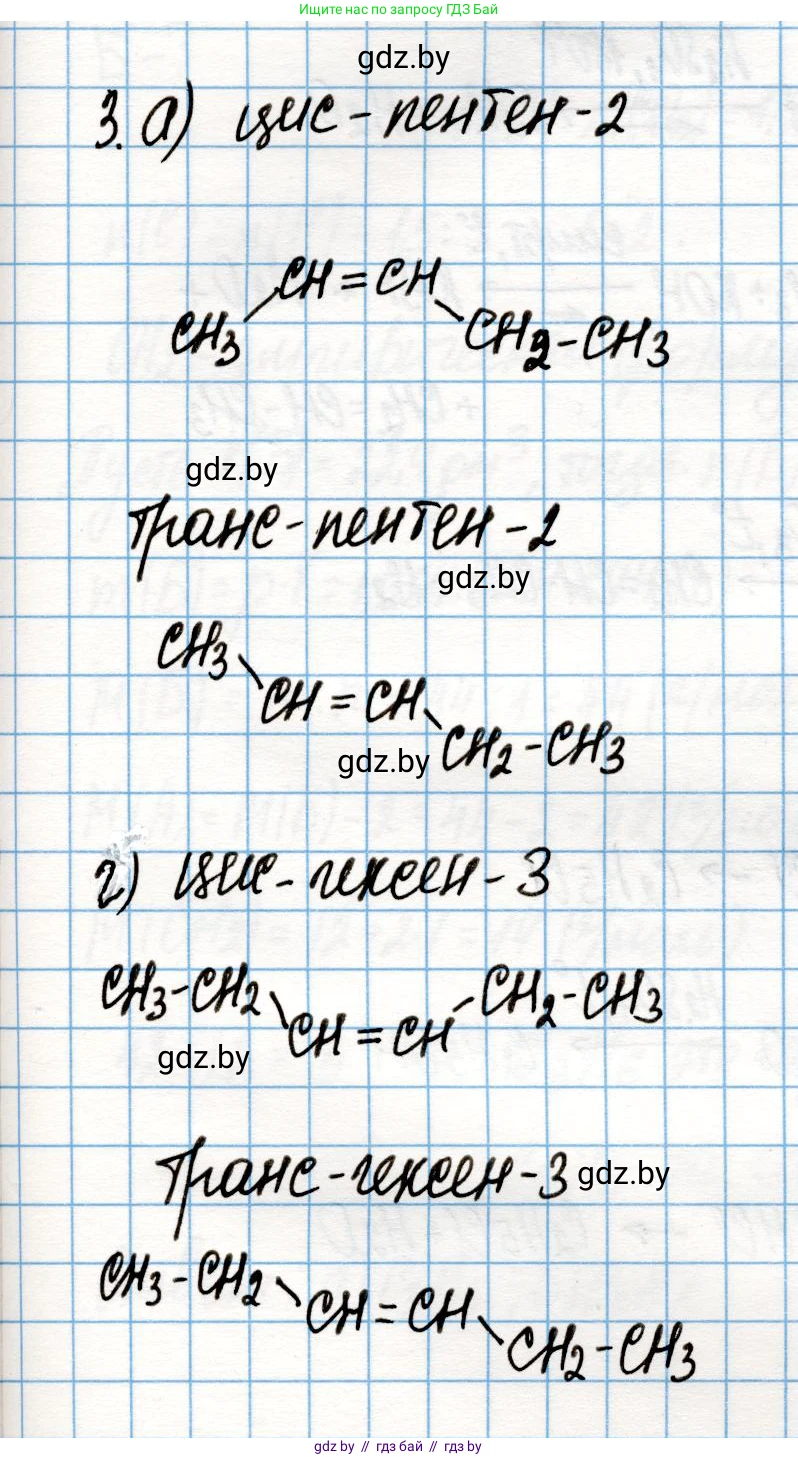 Ищите нас по запросу ГДЗ Бай
gdz.by
3. а) цис-пентен-2
CH=CH
CH3 CH2-CH3
gdz.by
Транс-пентен-2
gdz.by
CH3
CH=CH
gdz.by CH2-CH3
г) цис-гексен-3
CH3-CH2 CH2-CH3
CH=CH
gdz.by
Транс-гексен-3 gdz.by
CH3-CH2
CH=CH
CH2-CH3
gdz by // гдз бай // gdz by